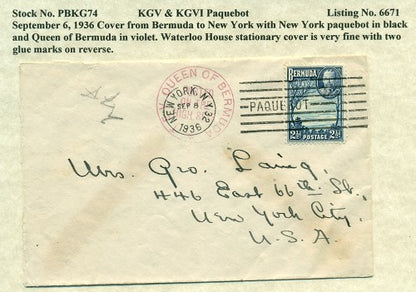 Stock No. PBKG74 KGV & KGVI Paquebot Listing No. 6671
September 6, 1936 Cover from Bermuda to New York with New York paquebot in black
and Queen of Bermuda in violet. Waterloo House stationary cover is very fine with two
glue marks on reverse.
QUEEN OF BERMUDA
NEW YORK, N.Y. 32
SEP 8
1936
PAQUEBOT
BERMUDA
2½ 2½
POSTAGE
Mrs. Geo. Laing,
446 East 66th St.,
New York City.
U.S.A.